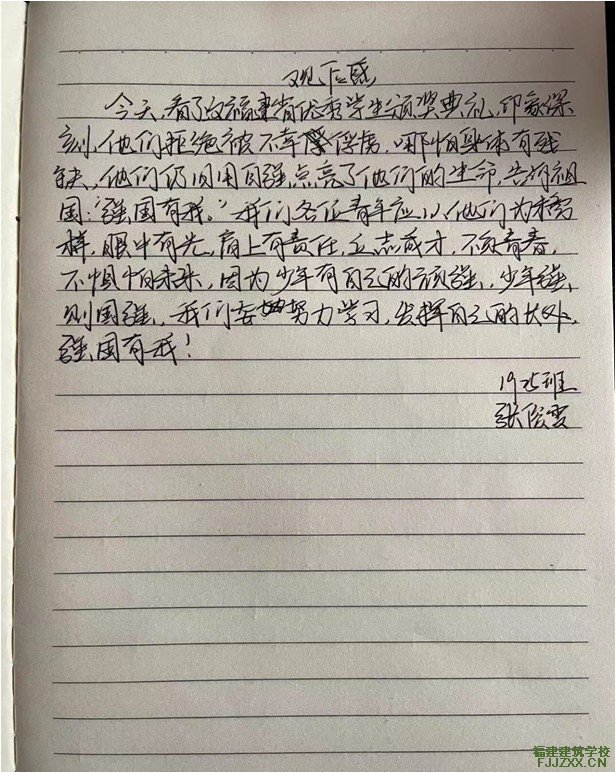 观后感
今天,看了福建省优秀学生颁奖典礼,印象深
刻,他们拒绝被不幸俘虏,哪怕身体有残
缺,他们仍旧用自强点亮了他们的生命,告诉祖
国:“强国有我。”我们各位青年应以他们为榜
样,眼中有光,肩上有责任,立志成才,不负青春,
不惧怕未来,因为少年有自己的顽强,少年强,
则国强,我们要努力学习,发挥自己的长处,
强国有我!
1925班
张俊雯
福建建筑学校
FJJZXX.CN